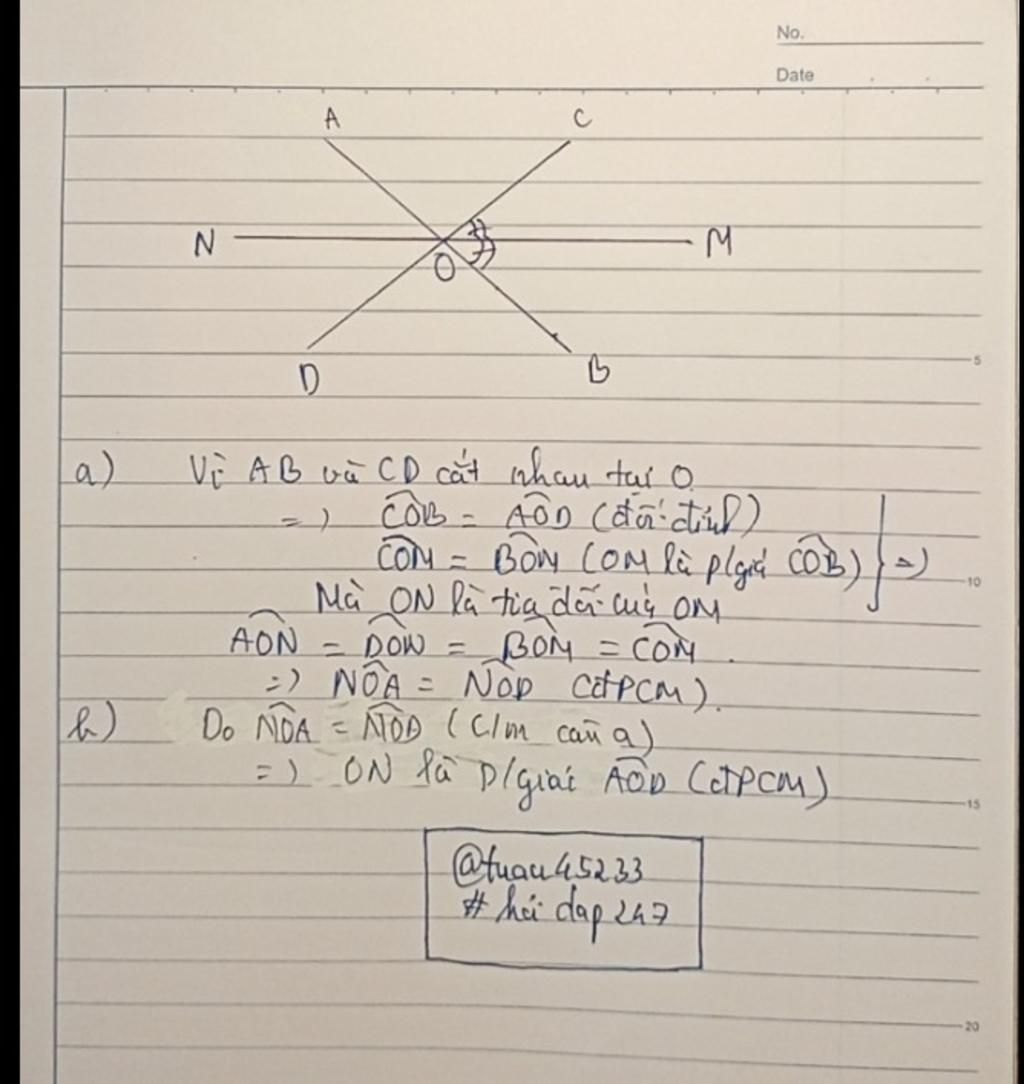 No.
Date
A
C
N
M
O
D
B
5
a) Vì AB và CD cắt nhau tại O
=) CÔB = AÔD (đối đỉnh)
CÔM = BÔM (OM là p/giá CÔB) } =)
10
Mà ON là tia đối của OM
AÔN = DÔN = BÔM = CÔM.
=) NÔA = NÔD (đPCM).
b) Do NÔA = NÔD (C/m câu a)
=) ON là p/giác AÔD (đPCM)
15
@tuau45233
# hỏi dap 247
20